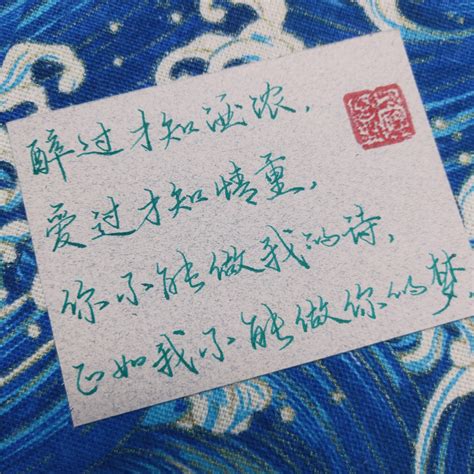 醉过才知酒浓，
爱过才知情重，
你不能做我的诗，
正如我不能做你的梦